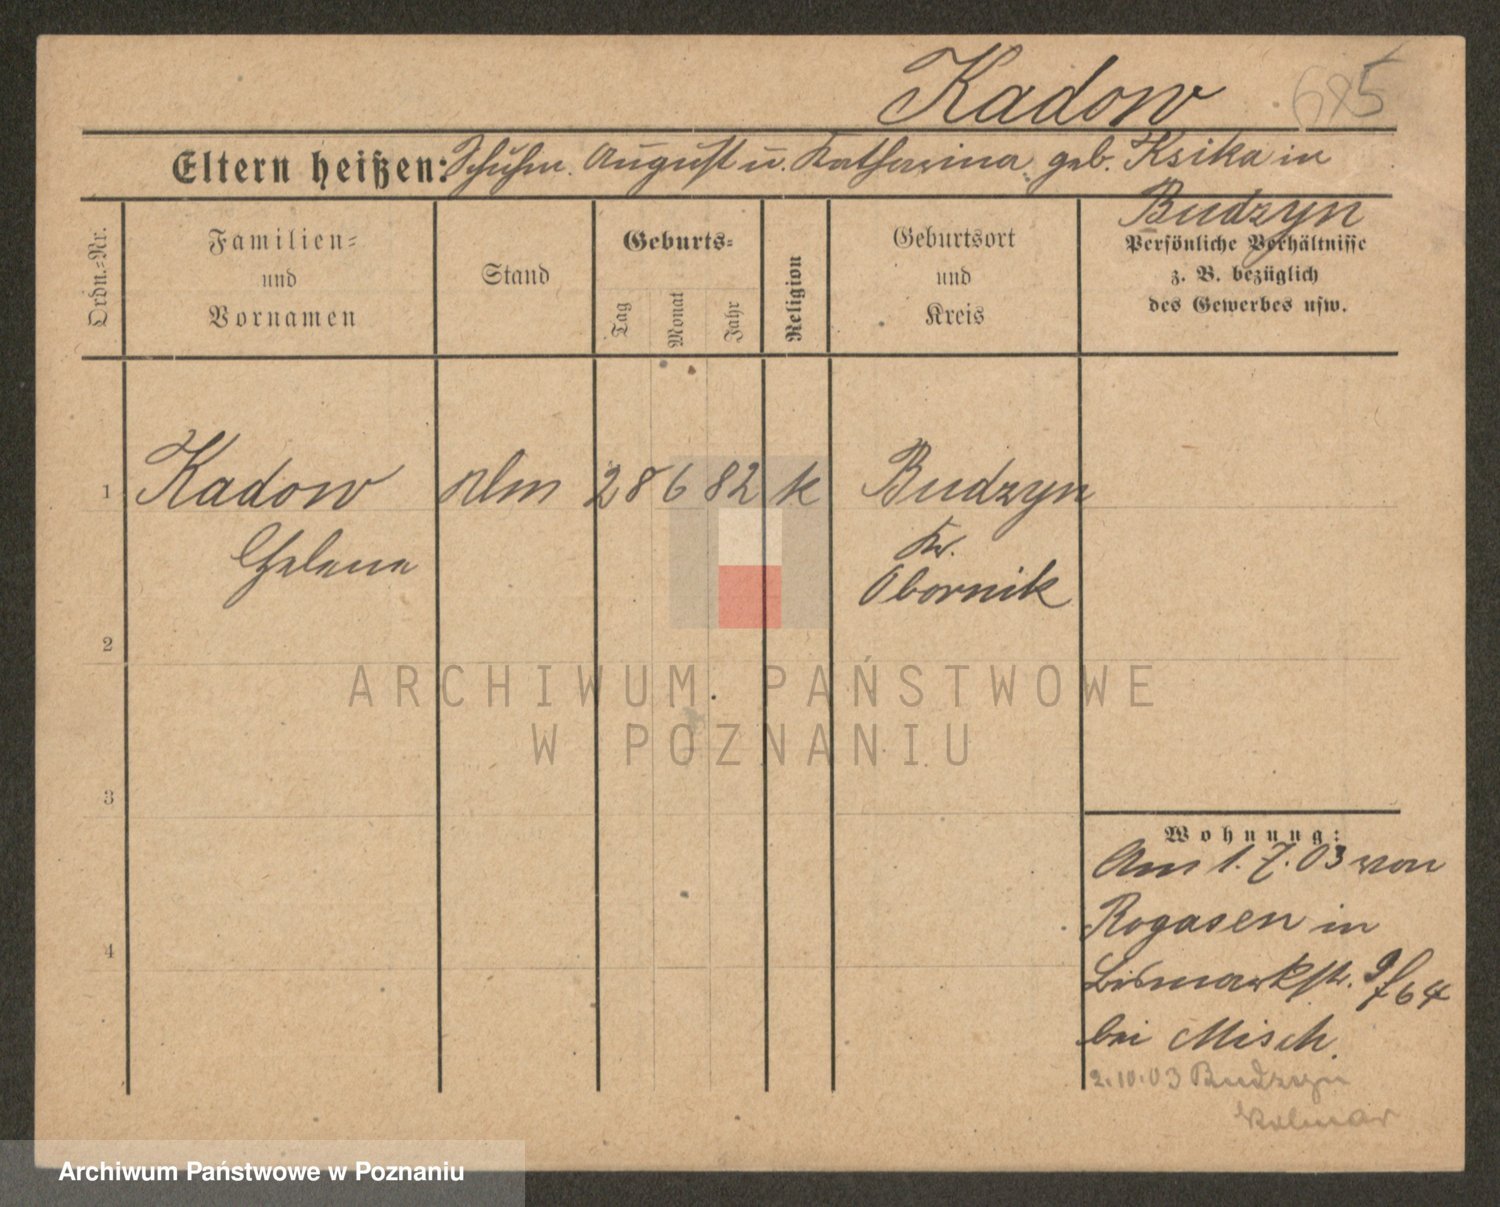 Kadow 685
Eltern heißen: Schuhm. August u. Katharina geb. Ksika in
Budzyn
Ordn.-Nr.
Familien-
und
Vornamen
Stand
Geburts-
Tag
Monat
Jahr
Religion
Geburtsort
und
Kreis
Persönliche Verhältnisse
z. B. bezüglich
des Gewerbes usw.
1 Kadow 28 6 82 k Budzyn
Helene Kr.
Obornik
2
ARCHIWUM PAŃSTWOWE
W POZNANIU
3
Wohnung:
Am 1.7.03 von
Rogasen in
4
Bismarkstr. 9
bei Misch.
2.10.03 Budzyn
Kolmar
Archiwum Państwowe w Poznaniu